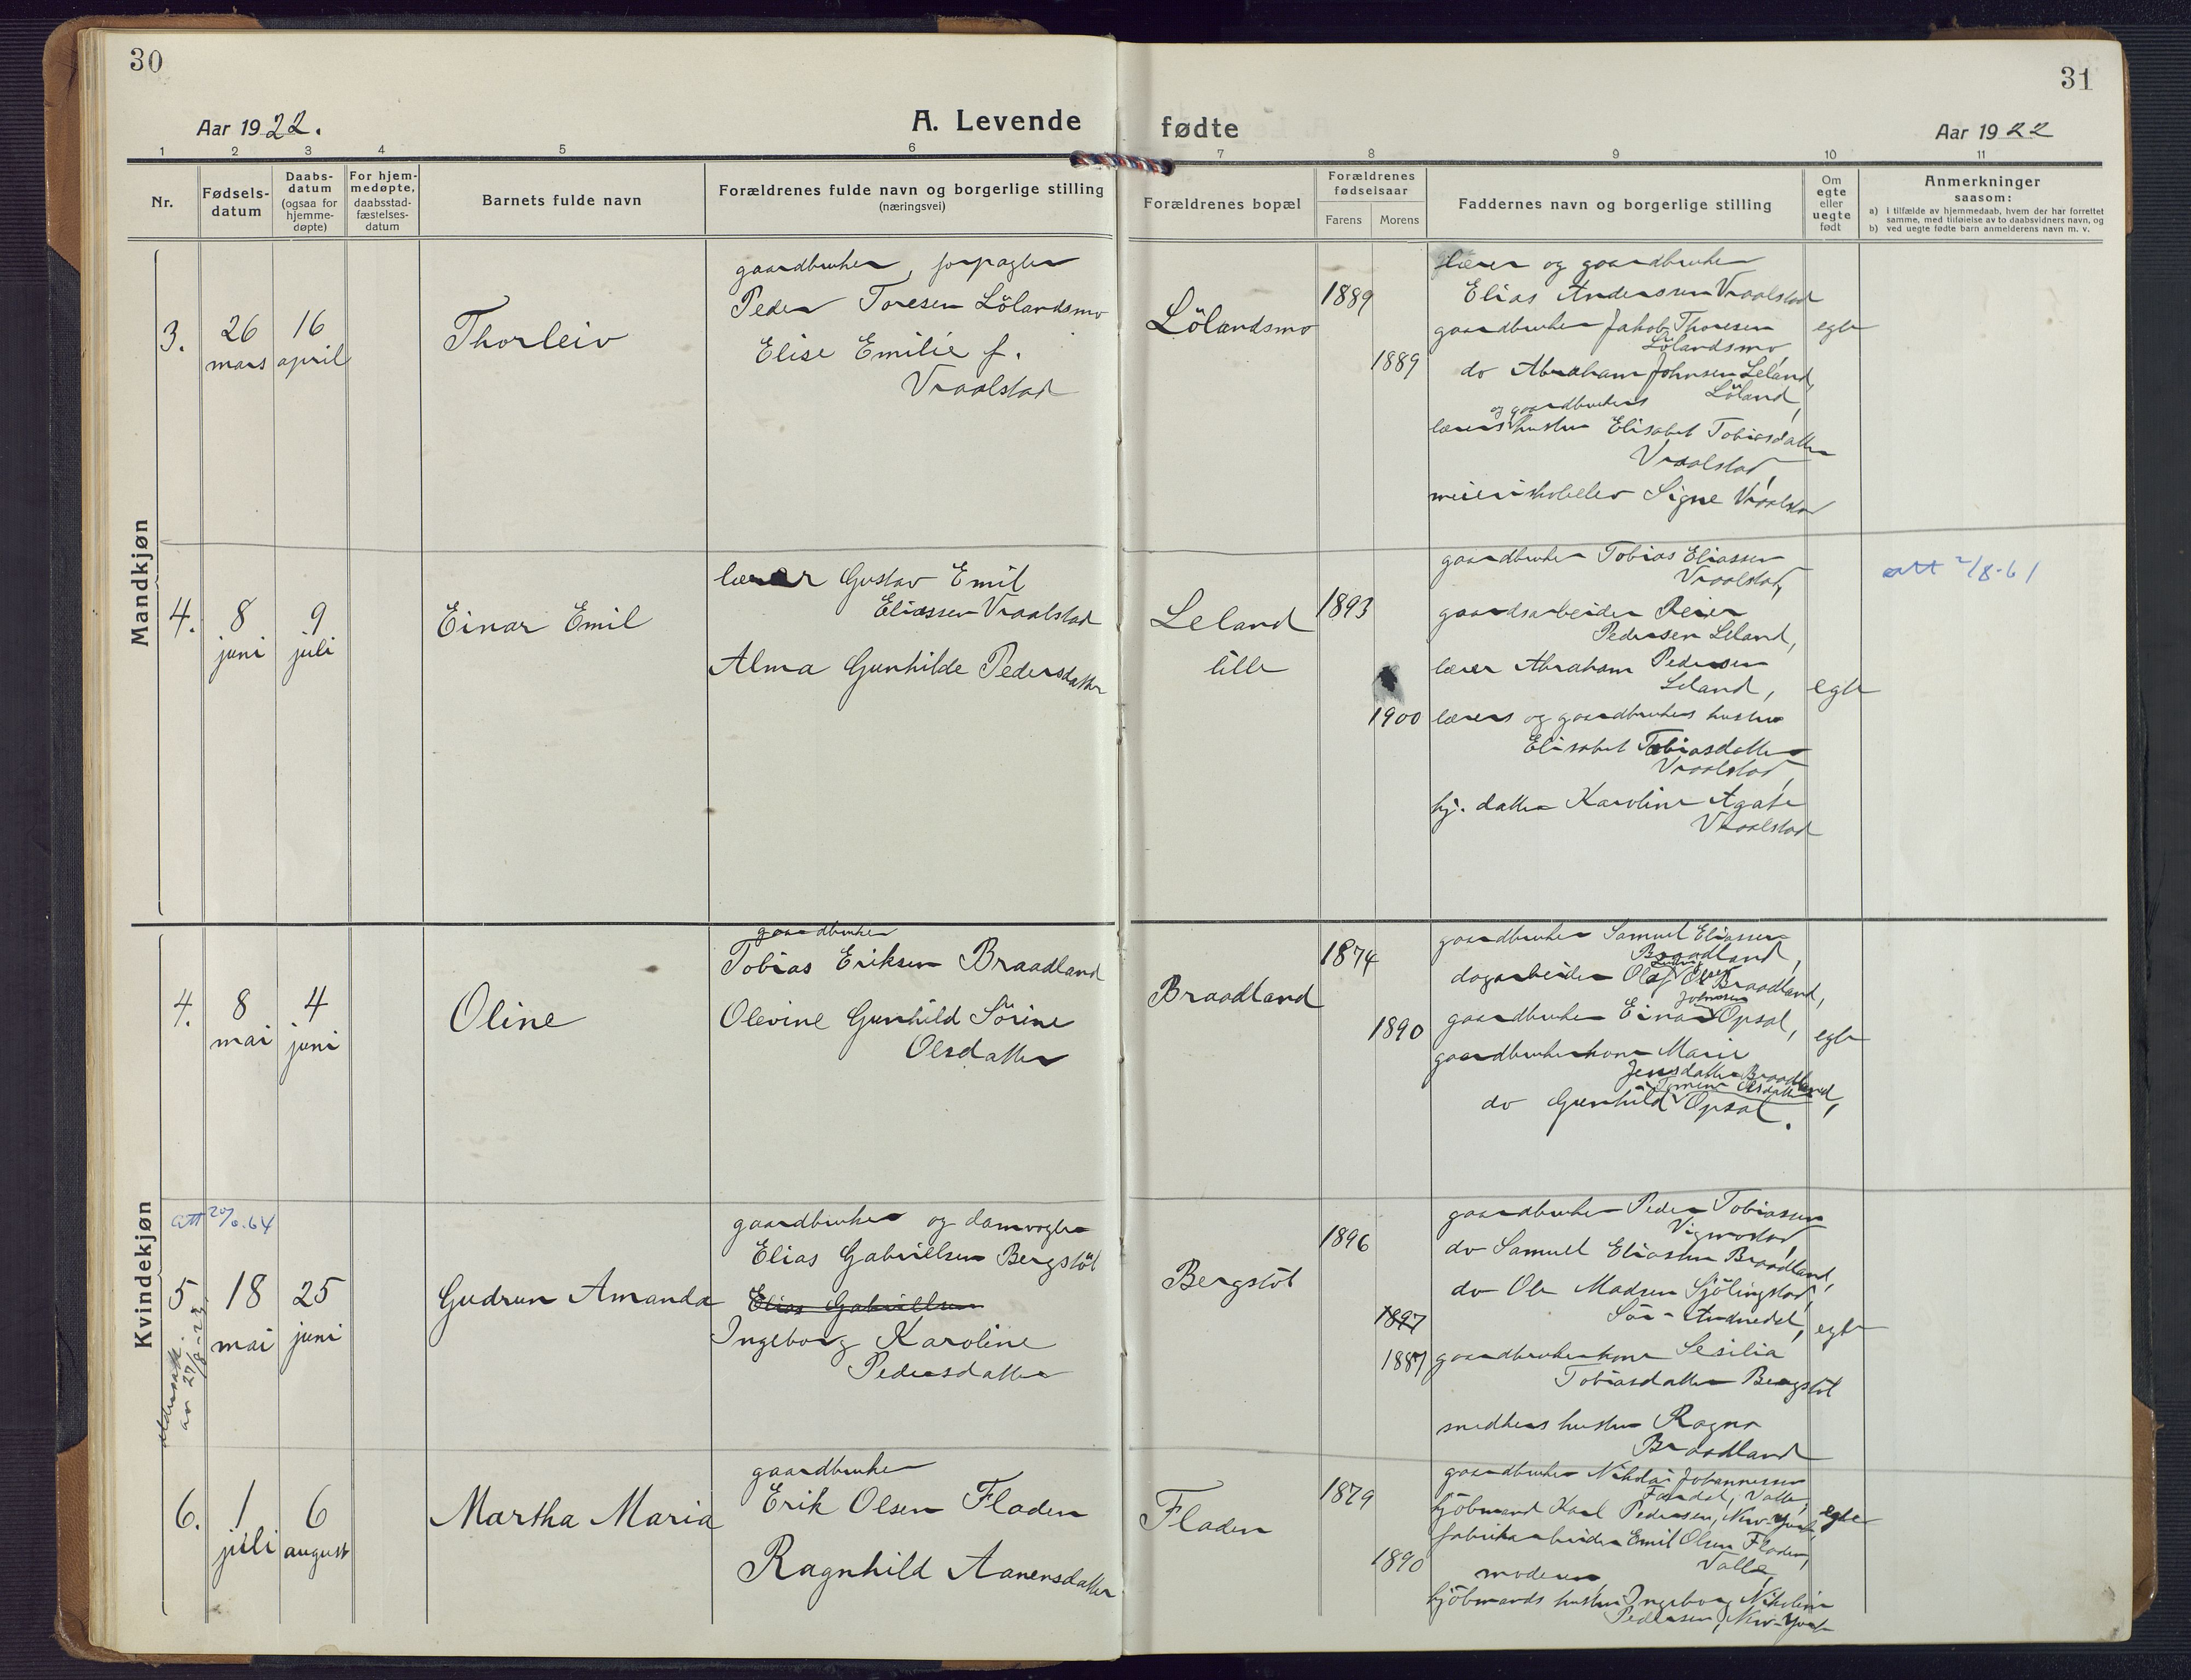 30
31
Aar 1922.
A. Levende
fødte
Aar 1922
1 2 3 4 5 6 7 8 9 10 11
Nr.
Fødsels-
datum
Daabs-
datum
(ogsaa for
hjemme-
døpte)
For hjem-
medøpte,
daabsstad-
fæstelses-
datum
Barnets fulde navn
Forældrenes fulde navn og borgerlige stilling
(næringsvei)
Forældrenes bopæl
Forældrenes
fødselsaar
Farens Morens
Faddernes navn og borgerlige stilling
Om
egte
eller
uegte
født
Anmerkninger
saasom:
a) i tilfælde av hjemmedaab, hvem der har forrettet
samme, med tilføielse av to daabsvidners navn, og
b) ved uegte fødte barn anmelderens navn m. v.
Mandkjøn
3.
26
mars
16
april
Thorleiv
gaardbruker, forpagter
Peder Toresen Lölandsmo
Elise Emilie f.
Vraalstad
Lölandsmo
1889
1889
lærer og gaardbruker
Elias Anderssen Vraalstad
gaardbruker Jakob Thoresen
Lölandsmo
do Abraham Johnsen Leland,
Löland,
og gaardbrukers
lærers hustru Elisabet Tobiasdatter
Vraalstad,
meieriskoleelev Signe Vraalstad
egte
4.
8
juni
9
juli
Einar Emil
lærer Gustav Emil
Eliassen Vraalstad
Alma Gunhilde Pedersdatter
Leland
lille
1893
1900
gaardbruker Tobias Eliassen
Vraalstad,
gaardsarbeider Peier
Pedersen Leland,
lærer Abraham Pedersen
Leland,
lærers og gaardbrukers hustru
Elisabet Tobiasdatter
Vraalstad,
hj. datter Karoline Agate
Vraalstad
egte
att 2/8-61
Kvindekjøn
4.
8
mai
4
juni
Oline
gaardbruker
Tobias Eriksen Braadland
Olevine Gunhild Sörine
Olsdatter
Braadland
1874
1890
gaardbruker Samuel Eliassen
Braadland,
dagarbeider Olaf Olsen Braadland,
Johnssen
gaardbruker Einar Opsal,
gaardbrukerkone Marie
Jensdatter Braadland,
Tomine Olsdatter
do Gunhild Opsal.
egte
att 20/6.64
5.
18
mai
25
juni
Gudrun Amanda
gaardbruker og damvogter
Elias Gabrielsen Bergstöl
Elias Gabrielsen
Ingeborg Karoline
Pedersdatter
Bergstöl
1896
1897
1887
gaardbruker Peder Tobiassen
Vigmostad
do Samuel Eliassen Braadland,
do Ole Madsen Sjölingstad,
Sör-Audnedal,
gaardbrukerkone Sesilia
Tobiasdatter Bergstöl
smedkers hustru Ragna
Braadland
egte
av 27/8-23.
6.
1
juli
6
august
Martha Maria
gaardbruker
Erik Olsen Fladen
Ragnhild Aanensdatter
Fladen
1879
1890
gaardbruker Nikolai Johannessen
Faredal, Valle,
kjöbmand Karl Pedersen, New-York,
fabrikarbeider Emil Olsen Fladen,
Valle,
moderen,
kjöbmands hustru Ingeborg Nikoline
Pedersen, New-York
egte